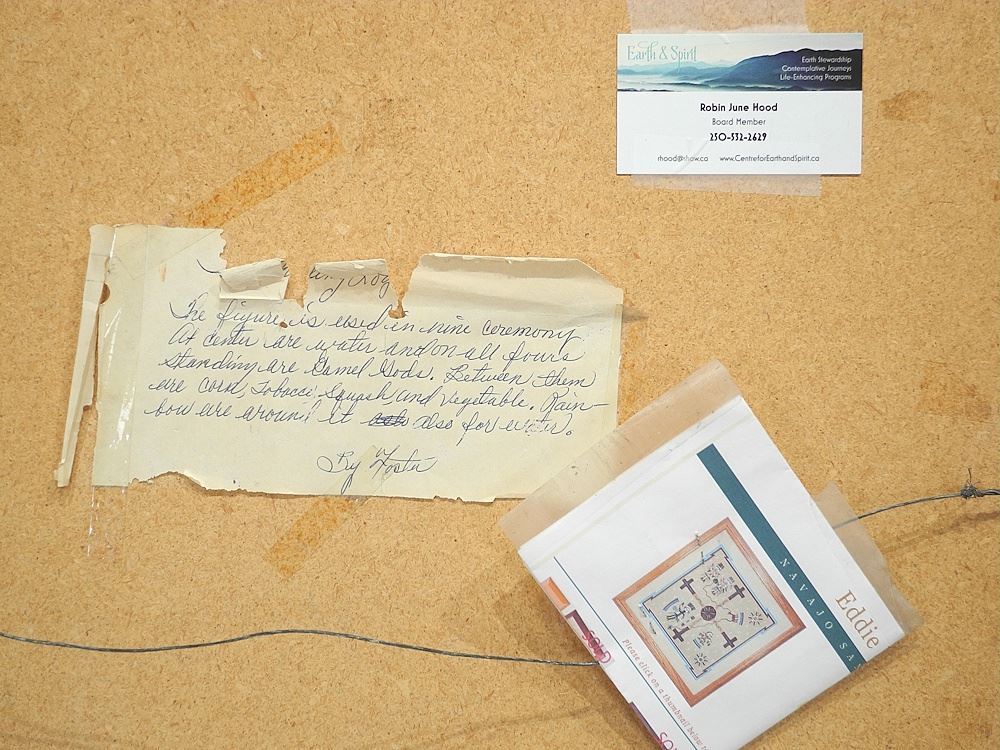 Earth & Spirit
Earth Stewardship
Contemplative Journeys
Life-Enhancing Programs
Robin June Hood
Board Member
250-532-2629
rhood@rhow.ca www.CentreforEarthandSpirit.ca
The figure is used in nine ceremony
At center are water and on all fours
standing are Gamel Gods. Between them
are corn, Tobacco, Squash and Vegetable. Rain-
bow are around it also for water.
By Foster
Eddie
NAVAJO SA
please click on a thumbnail below t
SOLD
SO